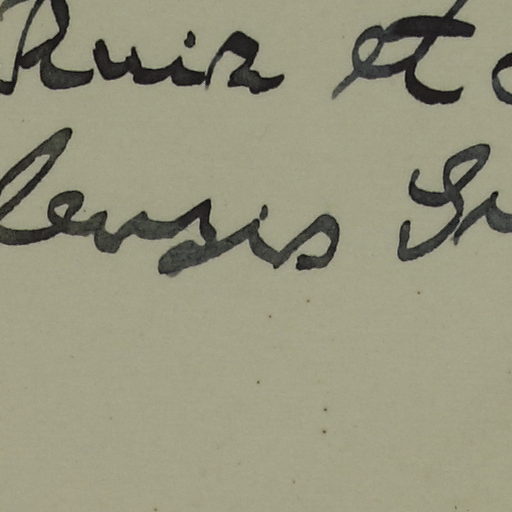 Ruiz et
lensis